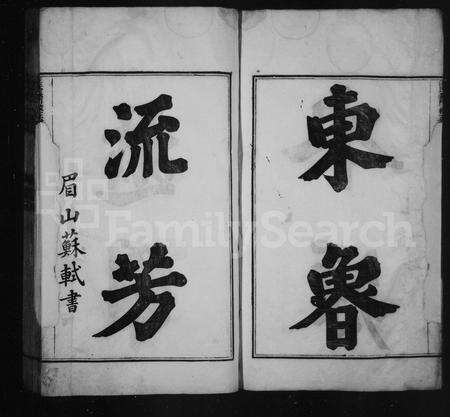 東魯
流芳
眉山蘇軾書
FamilySearch